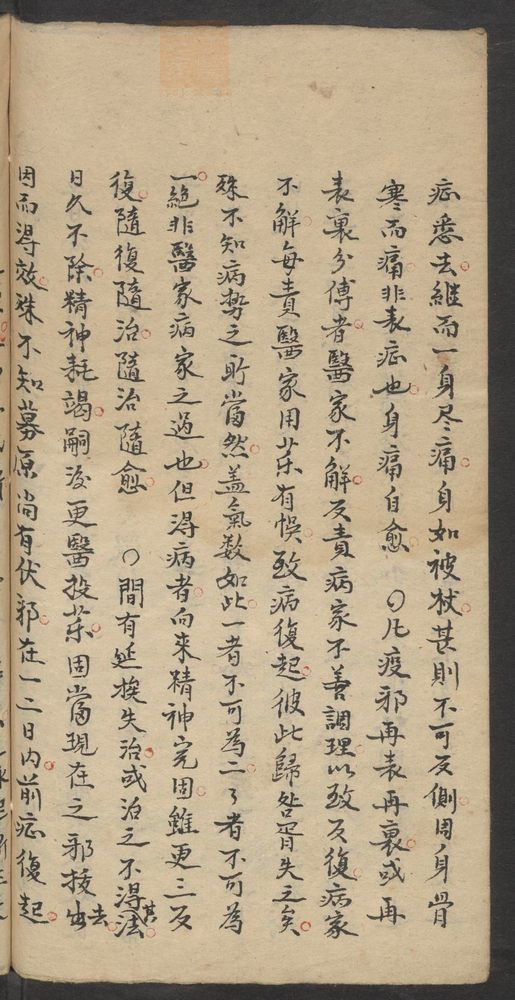 症悉去繼而一身尽痛身如被杖甚則不可反側周身骨
寒而痛非表症也身痛自愈 〇凡疫邪再表再裏或再
表裏分傳者醫家不解反責病家不善調理以致反復病家
不解每責醫家用药有悞致病復起彼此歸咎胥失之矣
殊不知病势之所當然盖氣数如此一者不可為二二者不可為
一絕非醫家病家之過也但得病者向来精神完固雖更三反
復隨復隨治隨治隨愈 〇間有延挨失治或治之不得其法
日久不除精神耗竭嗣後更醫投药固當現在之邪拔去
因而得效殊不知募原尚有伏邪在一二日内前症復起